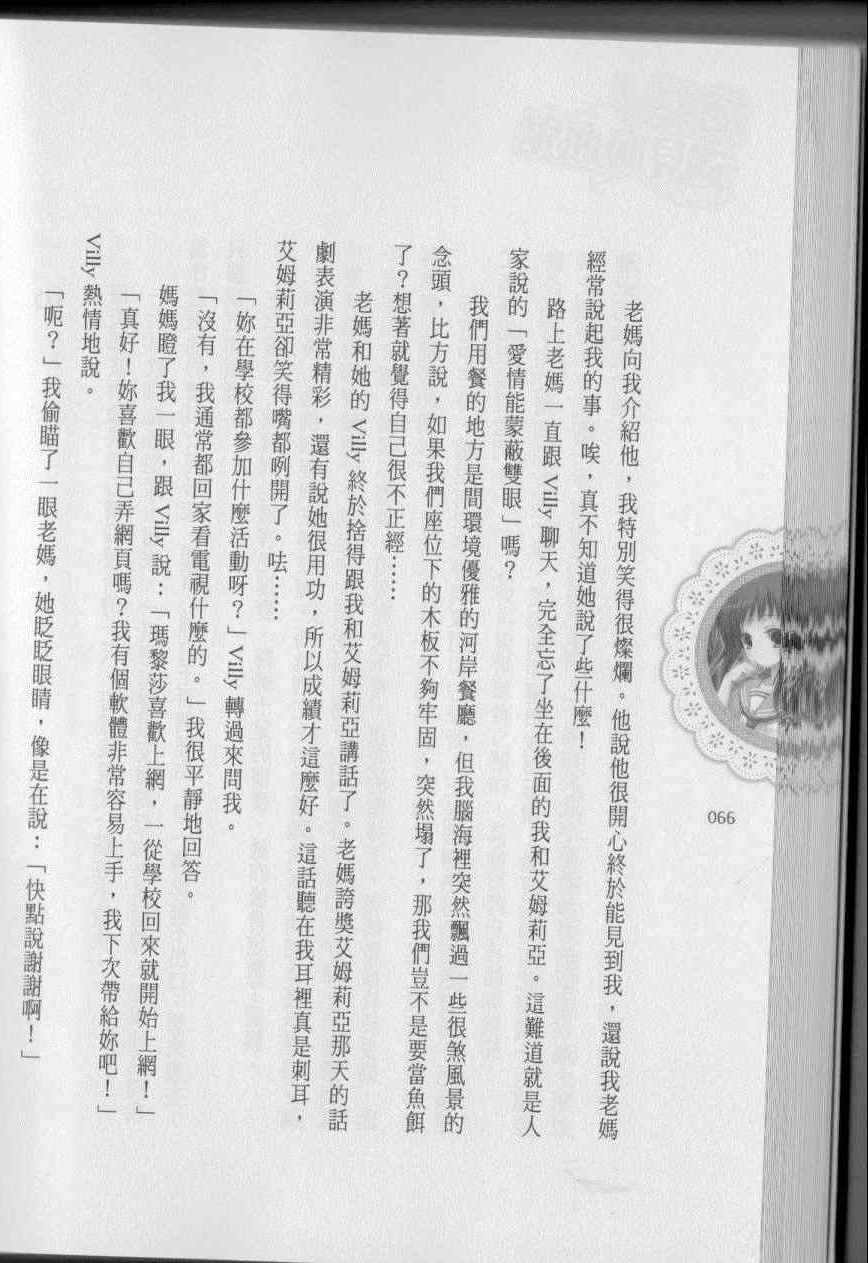 老媽向我介紹他，我特別笑得很燦爛。他說他很開心終於能見到我，還說我老媽
經常說起我的事。唉，真不知道她說了些什麼！
路上老媽一直跟 Villy 聊天，完全忘了坐在後面的我和艾姆莉亞。這難道就是人
家說的「愛情能蒙蔽雙眼」嗎？
我們用餐的地方是間環境優雅的河岸餐廳，但我腦海裡突然飄過一些很煞風景的
念頭，比方說，如果我們座位下的木板不夠牢固，突然塌了，那我們豈不是要當魚餌
了？想著就覺得自己很不正經……
老媽和她的 Villy 終於捨得跟我和艾姆莉亞講話了。老媽誇獎艾姆莉亞那天的話
劇表演非常精彩，還有說她很用功，所以成績才這麼好。這話聽在我耳裡真是刺耳，
艾姆莉亞卻笑得嘴都咧開了。呿……
「妳在學校都參加什麼活動呀？」Villy 轉過來問我。
「沒有，我通常都回家看電視什麼的。」我很平靜地回答。
媽媽瞪了我一眼，跟 Villy 說：「瑪黎莎喜歡上網，一從學校回來就開始上網！」
「真好！妳喜歡自己弄網頁嗎？我有個軟體非常容易上手，我下次帶給妳吧！」
Villy 熱情地說。
「呃？」我偷瞄了一眼老媽，她眨眨眼睛，像是在說：「快點說謝謝啊！」
066